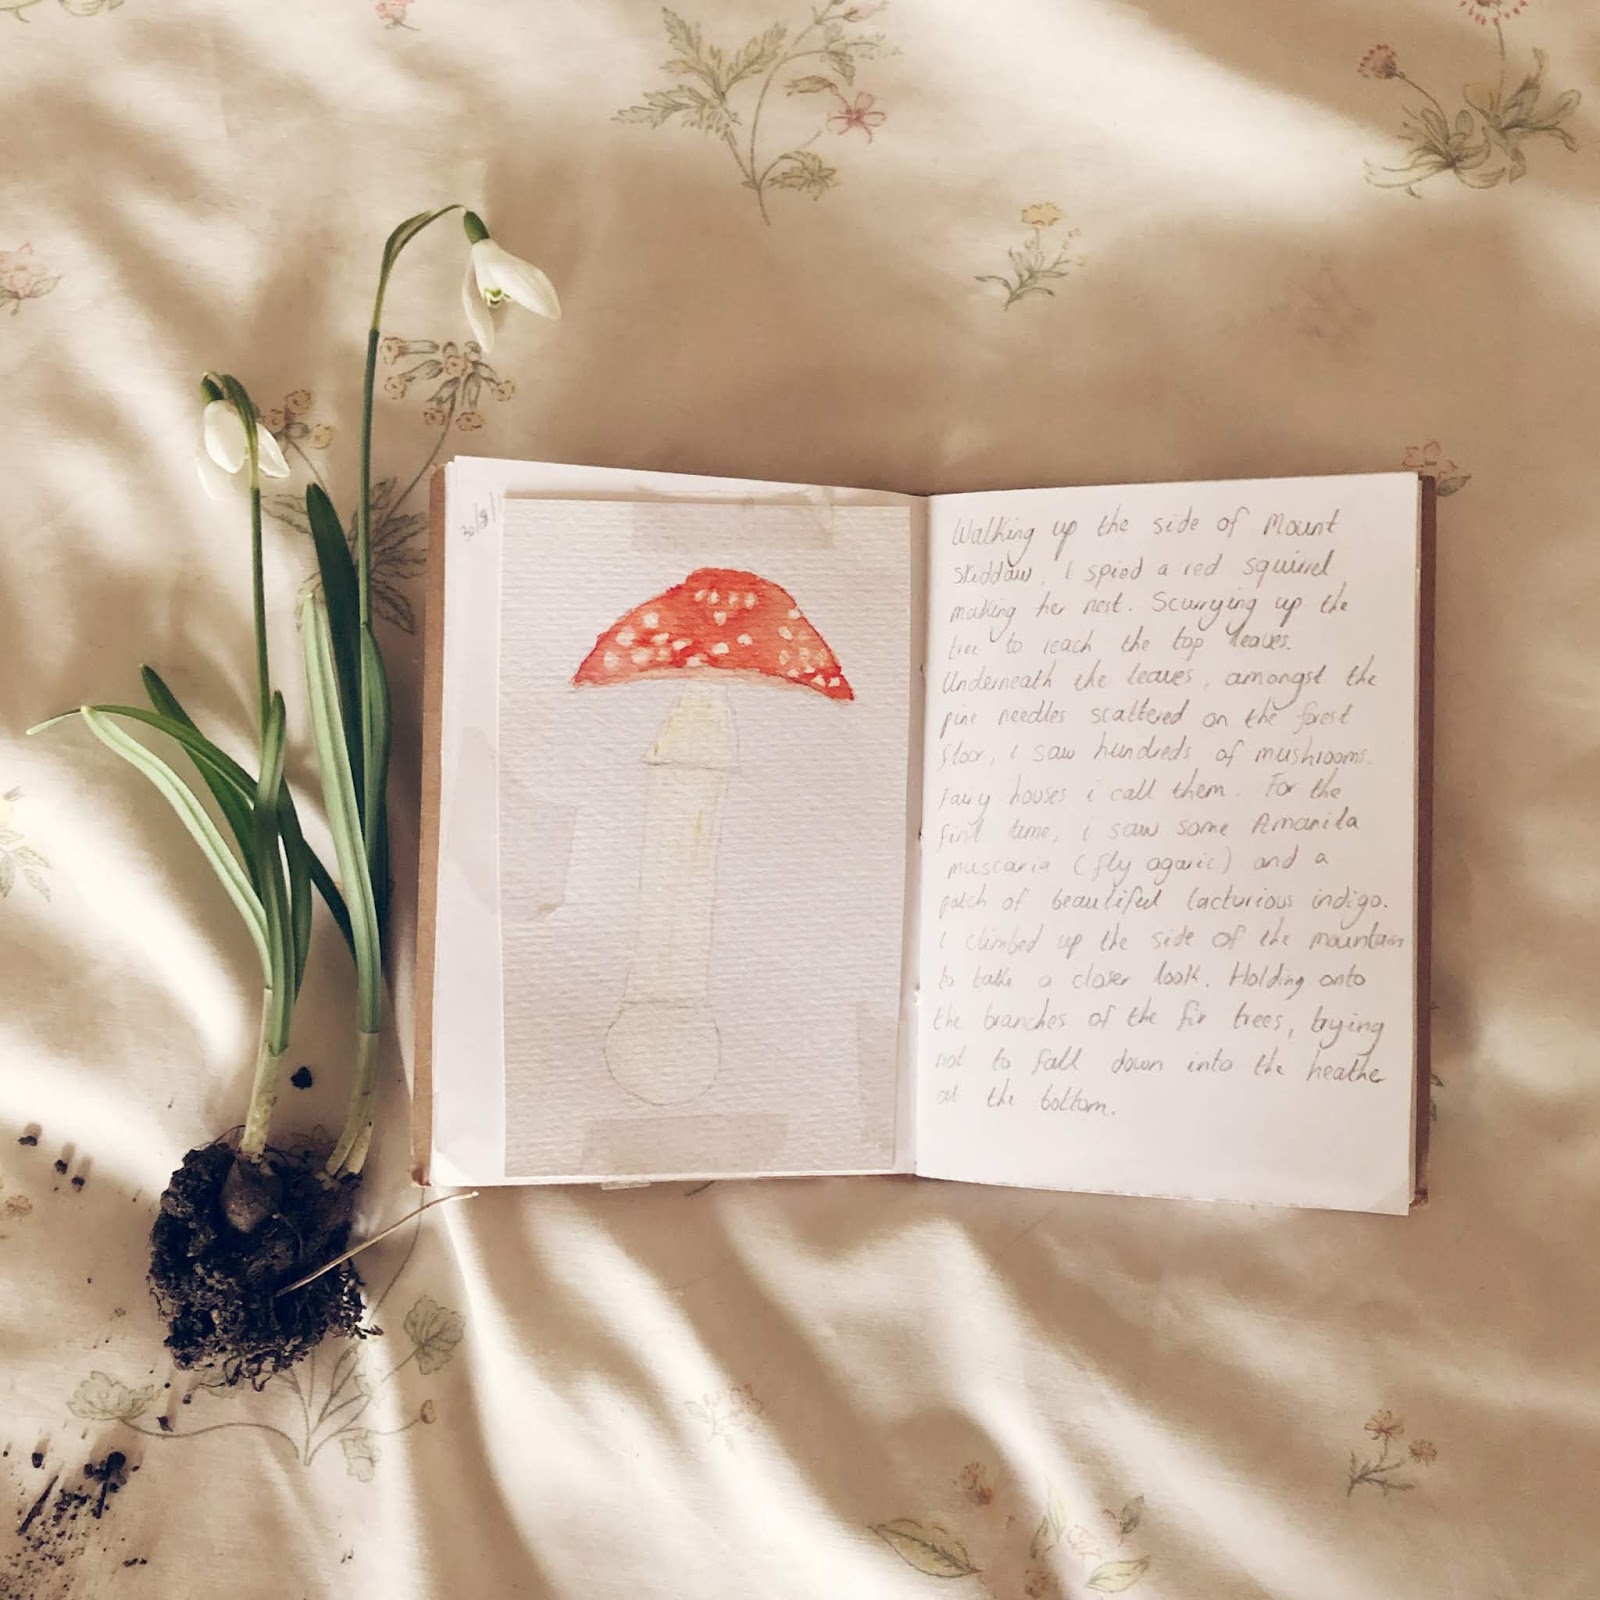 Walking up the side of Mount
Skiddaw, I spied a red squirrel
making her nest. Scurrying up the
tree to reach the top leaves.
Underneath the leaves, amongst the
pine needles scattered on the forest
floor, i saw hundreds of mushrooms.
Fairy houses i call them. For the
first time, i saw some Amanita
muscaria (fly agaric) and a
patch of beautiful lacturious indigo.
I climbed up the side of the mountain
to take a closer look. Holding onto
the branches of the fir trees, trying
not to fall down into the heather
at the bottom.